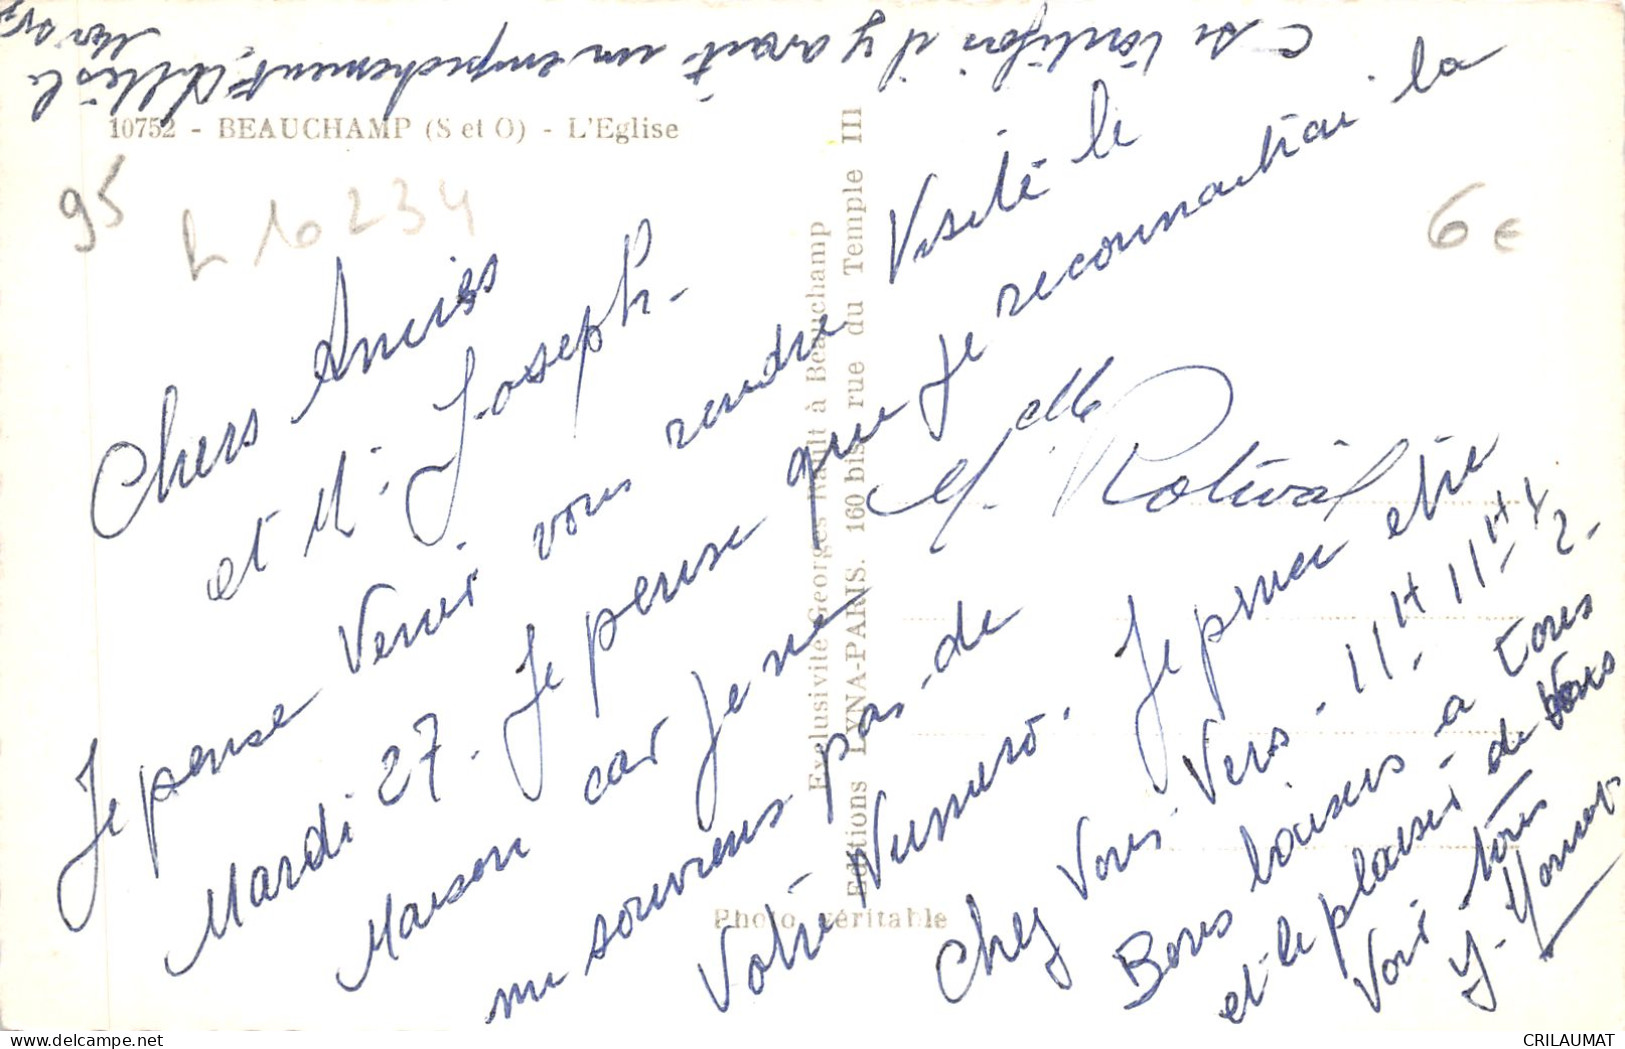 Si toutefois il y avait un empêchement
10752 - BEAUCHAMP (S et O) - L'Eglise
95
L 10234
6 €
Chers Amies
et M. Joseph -
Je pense Venir vous rendre Visite le
Mardi 27. Je pense que Je reconnaitrai la
Maison car Je ne
me souviens pas de
Votre Numéro. Je pense etre
Chez Vous Vers - 11H 11H 1/2 -
Bons baisers a tous
et le plaisir de Vous
Voir tous
Melle Rotival
Exclusivité Georges Rault à Beauchamp
Editions LYNA-PARIS. 160 bis rue du Temple III
Photo véritable
CRILAUMAT